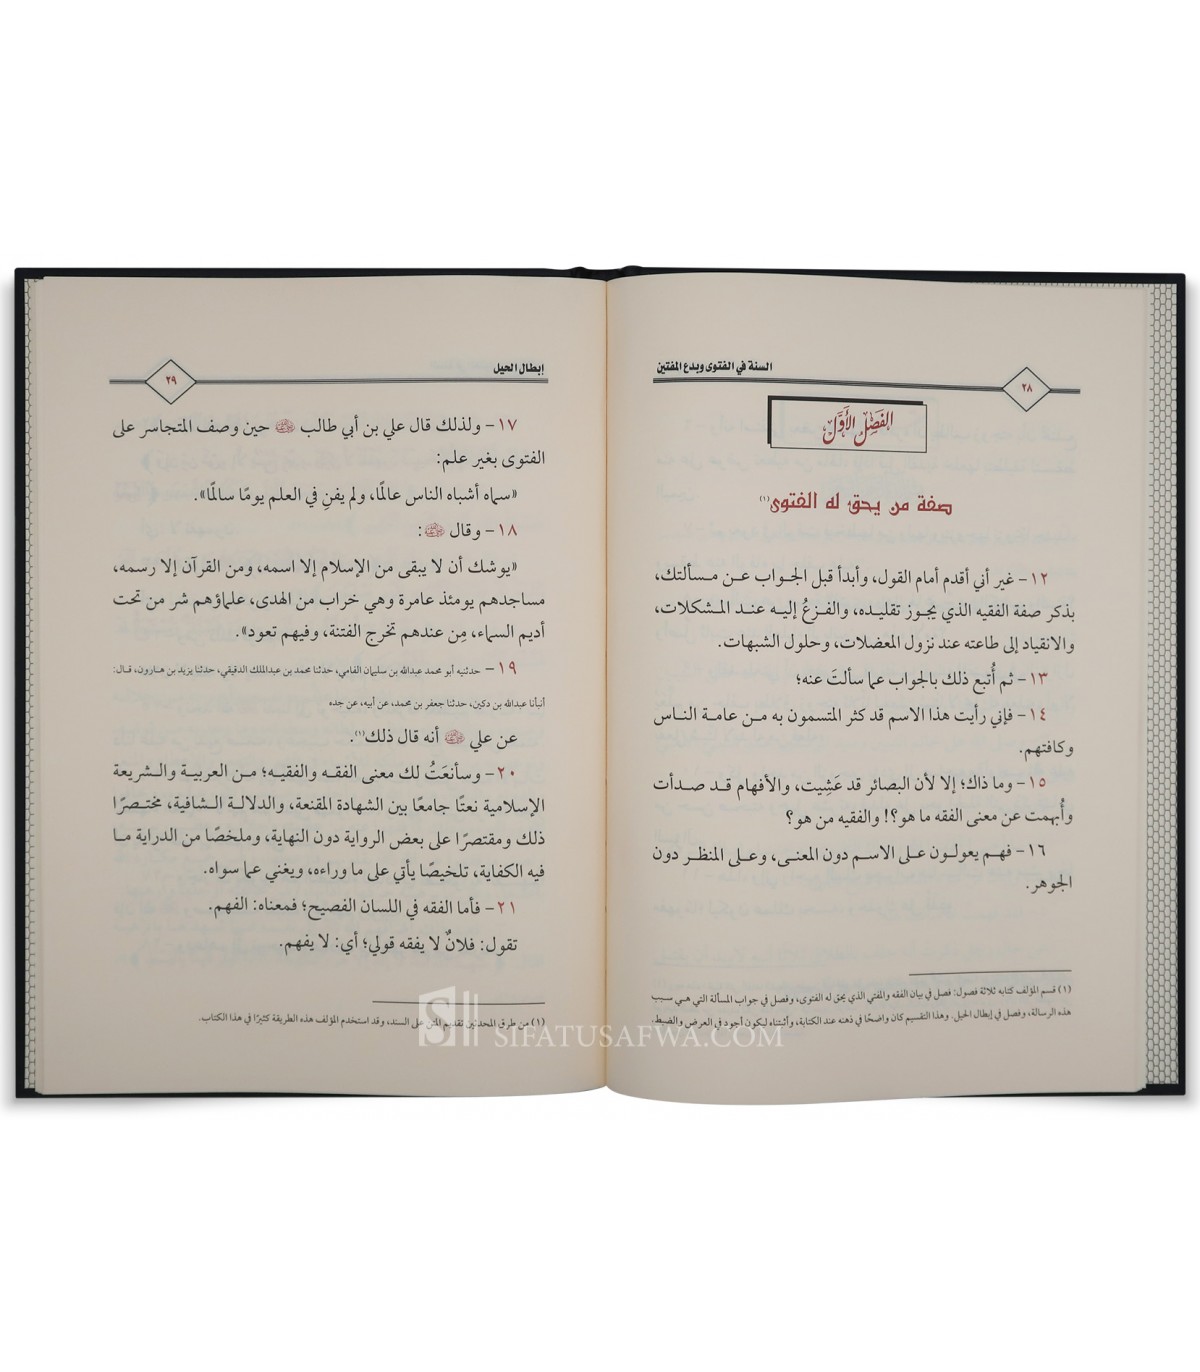 السنة في الفتوى وبدع المفتين
٢٨
الفصل الأول
صفة من يحق له الفتوى(١)
١٢- غير أني أقدم أمام القول، وأبدأ قبل الجواب عن مسألتك،
بذكر صفة الفقيه الذي يجوز تقليده، والفزعُ إليه عند المشكلات،
والانقياد إلى طاعته عند نزول المعضلات، وحلول الشبهات.
١٣- ثم أُتبع ذلك بالجواب عما سألتَ عنه؛
١٤- فإني رأيت هذا الاسم قد كثر المتسمون به من عامة الناس
وكافتهم.
١٥- وما ذاك؛ إلا لأن البصائر قد عَشِيت، والأفهام قد صدأت
وأُبهمت عن معنى الفقه ما هو؟! والفقيه من هو؟
١٦- فهم يعولون على الاسم دون المعنى، وعلى المنظر دون
الجوهر.
(١) قسم المؤلف كتابه ثلاثة فصول: فصل في بيان الفقه والمفتي الذي يحق له الفتوى، وفصل في جواب المسألة التي هي سبب
هذه الرسالة، وفصل في إبطال الحيل. وهذا التقسيم كان واضحًا في ذهنه عند الكتابة، وأثبتناه ليكون أجود في العرض والضبط.
إبطال الحيل
٢٩
١٧- ولذلك قال علي بن أبي طالب حين وصف المتجاسر على
الفتوى بغير علم:
«سماه أشباه الناس عالمًا، ولم يفنِ في العلم يومًا سالمًا».
١٨- وقال :
«يوشك أن لا يبقى من الإسلام إلا اسمه، ومن القرآن إلا رسمه،
مساجدهم يومئذ عامرة وهي خراب من الهدى، علماؤهم شر من تحت
أديم السماء، مِن عندهم تخرج الفتنة، وفيهم تعود».
١٩- حدثنيه أبو محمد عبدالله بن سليمان الفامي، حدثنا محمد بن عبدالملك الدقيقي، حدثنا يزيد بن هارون، قال:
أنبأنا عبدالله بن دكين، حدثنا جعفر بن محمد، عن أبيه، عن جده
عن علي أنه قال ذلك(١).
٢٠- وسأنعَتُ لك معنى الفقه والفقيه؛ من العربية والشريعة
الإسلامية نعتًا جامعًا بين الشهادة المقنعة، والدلالة الشافية، مختصرًا
ذلك ومقتصرًا على بعض الرواية دون النهاية، وملخصًا من الدراية ما
فيه الكفاية، تلخيصًا يأتي على ما وراءه، ويغني عما سواه.
٢١- فأما الفقه في اللسان الفصيح؛ فمعناه: الفهم.
تقول: فلانٌ لا يفقه قولي؛ أي: لا يفهم.
(١) من طرق المحدثين تقديم المتن على السند، وقد استخدم المؤلف هذه الطريقة كثيرًا في هذا الكتاب.
SIFATUSAFWA.COM